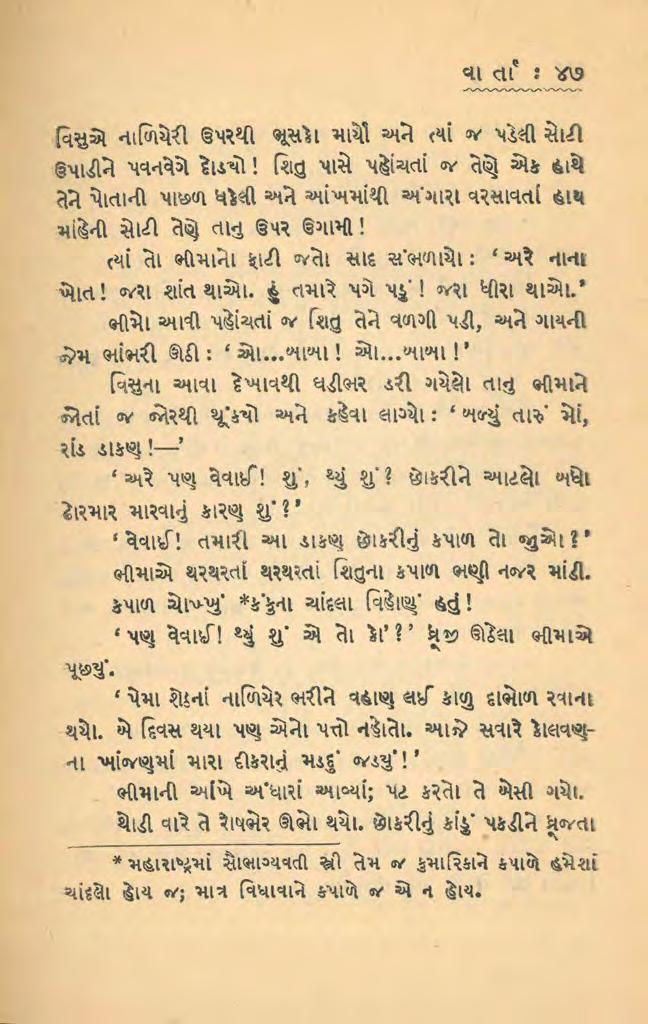 વાર્તા : ૪૭
વિસુએ નાળિયેરી ઉપરથી ભૂસકો માર્યો અને ત્યાં જ પડેલી સોટી
ઉપાડીને પવનવેગે દોડયો! શિતુ પાસે પહોંચતાં જ તેણે એક હાથે
તેને પોતાની પાછળ ધકેલી અને આંખમાંથી અંગારા વરસાવતાં હાથ
માંહેની સોટી તેણે તાનુ ઉપર ઉગામી!
ત્યાં તો ભીમાનો ફાટી જતો સાદ સંભળાયો : ‘અરે નાના
ખોત! જરા શાંત થાઓ. હું તમારે પગે પડું! જરા ધીરા થાઓ.’
ભીમો આવી પહોંચતાં જ શિતુ તેને વળગી પડી, અને ગાયની
જેમ ભાંભરી ઊઠી : ‘ઓ...બાબા! ઓ...બાબા!’
વિસુના આવા દેખાવથી ઘડીભર ડરી ગયેલો તાનુ ભીમાને
જોતાં જ જોરથી થૂંકયો અને કહેવા લાગ્યો : ‘બળ્યું તારું મોં,
રાંડ ડાકણ!—’
‘અરે પણ વેવાઈ! શું, થ્યું શું? છોકરીને આટલો બધો
ઢોરમાર મારવાનું કારણ શું?’
‘વેવાઈ! તમારી આ ડાકણ છોકરીનું કપાળ તો જુઓ?’
ભીમાએ થરથરતાં થરથરતાં શિતુના કપાળ ભણી નજર માંડી.
કપાળ ચોખ્ખું *કંકુના ચાંદલા વિહોણું હતું!
‘પણ વેવાઈ! થ્યું શું એ તો કો’?’ ધ્રૂજી ઊઠેલા ભીમાએ
પૂછયું.
‘પેમા શેઠનાં નાળિયેર ભરીને વહાણ લઈ કાળુ દાભોળ રવાના
થયો. બે દિવસ થયા પણ એનો પત્તો નહોતો. આજે સવારે કોલવણ-
ના ખાંજણમાં મારા દીકરાનું મડદું જડયું!’
ભીમાની આંખે અંધારાં આવ્યાં; પટ કરતો તે બેસી ગયો.
થોડી વારે તે રોષભેર ઊભો થયો. છોકરીનું કાંડું પકડીને ધ્રૂજતા
* મહારાષ્ટ્રમાં સૌભાગ્યવતી સ્ત્રી તેમ જ કુમારિકાને કપાળે હમેશાં
ચાંદલો હોય જ; માત્ર વિધાવાને કપાળે જ એ ન હોય.